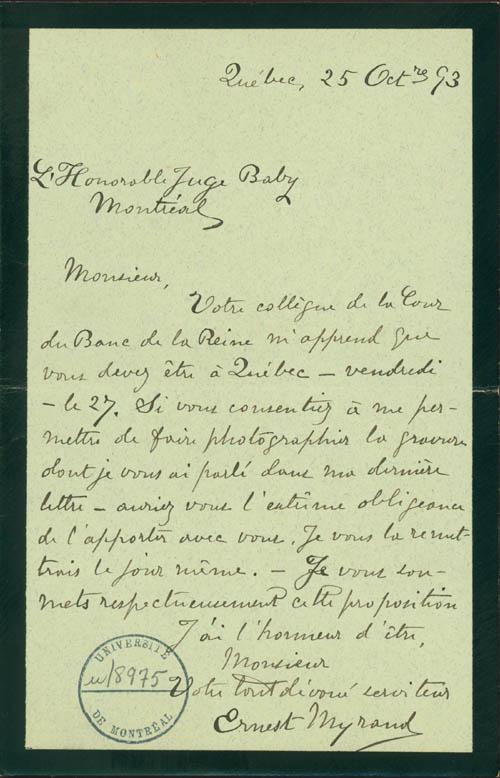 Québec, 25 Octre 93
L'Honorable Juge Baby
Montréal
Monsieur,
Votre collègue de la Cour
du Banc de la Reine m'apprend que
vous devez être à Québec – vendredi
– le 27. Si vous consentiez à me per-
mettre de faire photographier la gravure
dont je vous ai parlé dans ma dernière
lettre – auriez vous l'extrême obligeance
de l'apporter avec vous. Je vous la remet-
trais le jour même. – Je vous sou-
mets respectueusement cette proposition
J'ai l'honneur d'être,
Monsieur
Votre tout dévoué serviteur
Ernest Myrand
UNIVERSITÉ
u/8975
DE MONTRÉAL